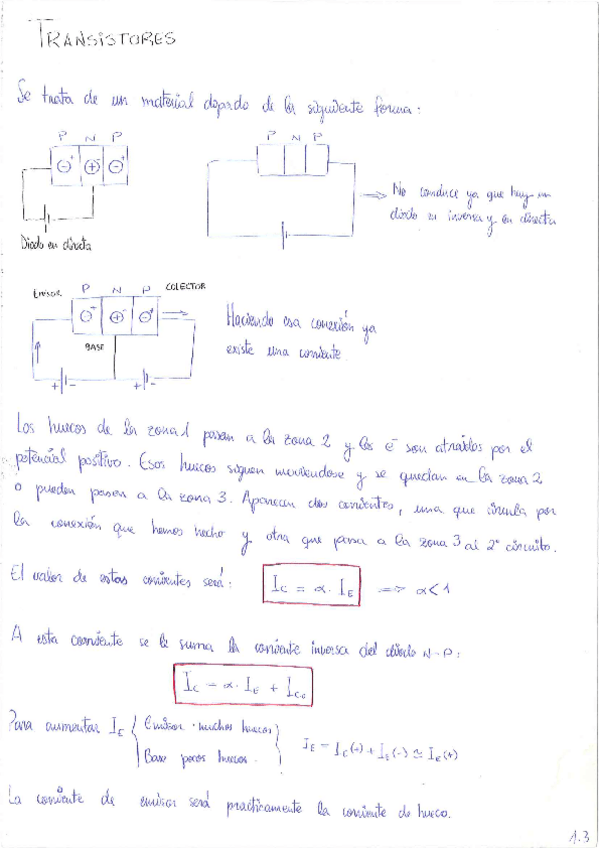 TRANSISTORES
Se trata de un material dopado de la siguiente forma:
P N P
P N P
Diodo en directa
No conduce ya que hay un
diodo en inversa y en directa
EMISOR P N P COLECTOR
BASE
+ - + -
Haciendo esa conexión ya
existe una corriente
Los huecos de la zona 1 pasan a la zona 2 y los e⁻ son atraidos por el
potencial positivo. Esos huecos siguen moviendose y se quedan en la zona 2
o pueden pasar a la zona 3. Aparecen dos corrientes, una que circula por
la conexión que hemos hecho y otra que pasa a la zona 3 al 2º circuito.
El valor de estas corrientes será: I_C = α · I_E ⇒ α < 1
A esta corriente se le suma la corriente inversa del diodo N-P:
I_C = α · I_E + I_Co
Para aumentar I_E { Emisor muchos huecos
Base pocos huecos. } I_E = I_E(+) + I_E(-) ≃ I_E(+)
La corriente de emisor será practicamente la corriente de hueco.
1.3